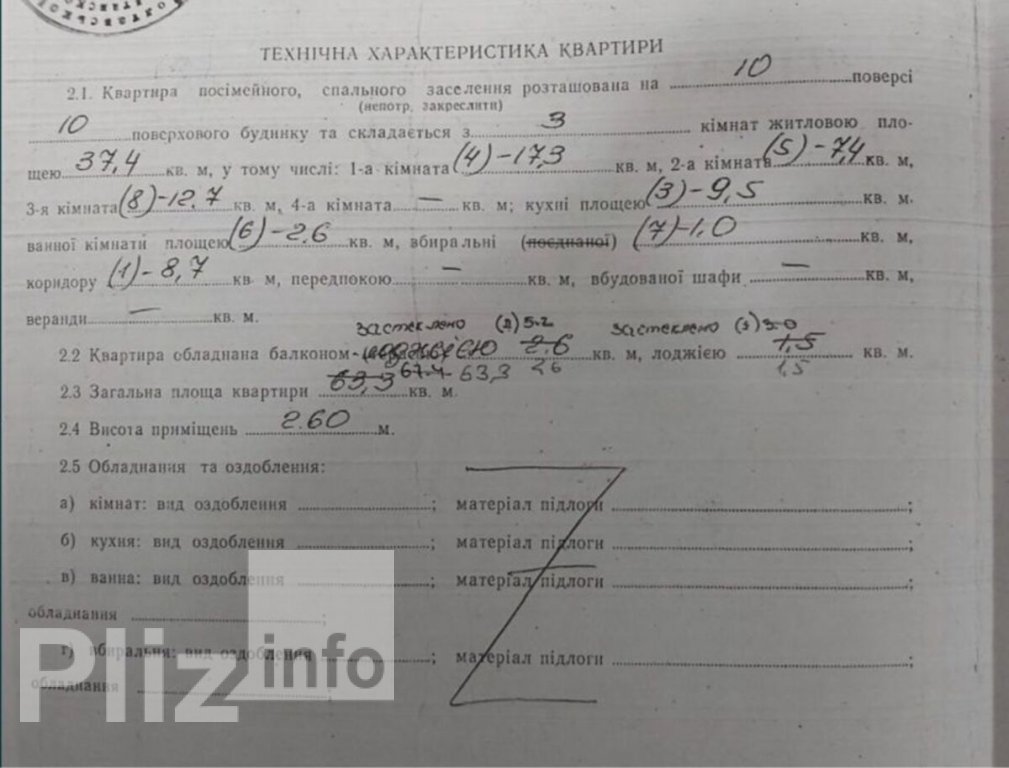 ТЕХНІЧНА ХАРАКТЕРИСТИКА КВАРТИРИ
2.1. Квартира посімейного, спального заселення розташована на 10 поверсі
(непотр. закреслити)
10 поверхового будинку та складається з 3 кімнат житловою пло-
щею 37,4 кв. м, у тому числі: 1-а кімната (4)-17,3 кв. м, 2-а кімната (5)-7,4 кв. м,
3-я кімната (8)-12,7 кв. м, 4-а кімната — кв. м; кухні площею (3)-9,5 кв. м.
ванної кімнати площею (6)-2,6 кв. м, вбиральні (поєднаної) (7)-1,0 кв. м,
коридору (1)-8,7 кв. м, передпокою — кв. м, вбудованої шафи — кв. м,
веранди — кв. м.
застеклено (2) 5.2 застеклено (9) 3.0
2.2 Квартира обладнана балконом - лоджією 2.6 кв. м, лоджією 1,5 кв. м.
2.6 1,5
2.3 Загальна площа квартири 63,3 67.4 63,3 кв. м.
2.4 Висота приміщень 2.60 м.
2.5 Обладнання та оздоблення:
а) кімнат: вид оздоблення ; матеріал підлоги ;
б) кухня: вид оздоблення ; матеріал підлоги ;
в) ванна: вид оздоблення ; матеріал підлоги ;
обладнання ;
г) вбиральня: вид оздоблення ; матеріал підлоги ;
обладнання
Pliz info